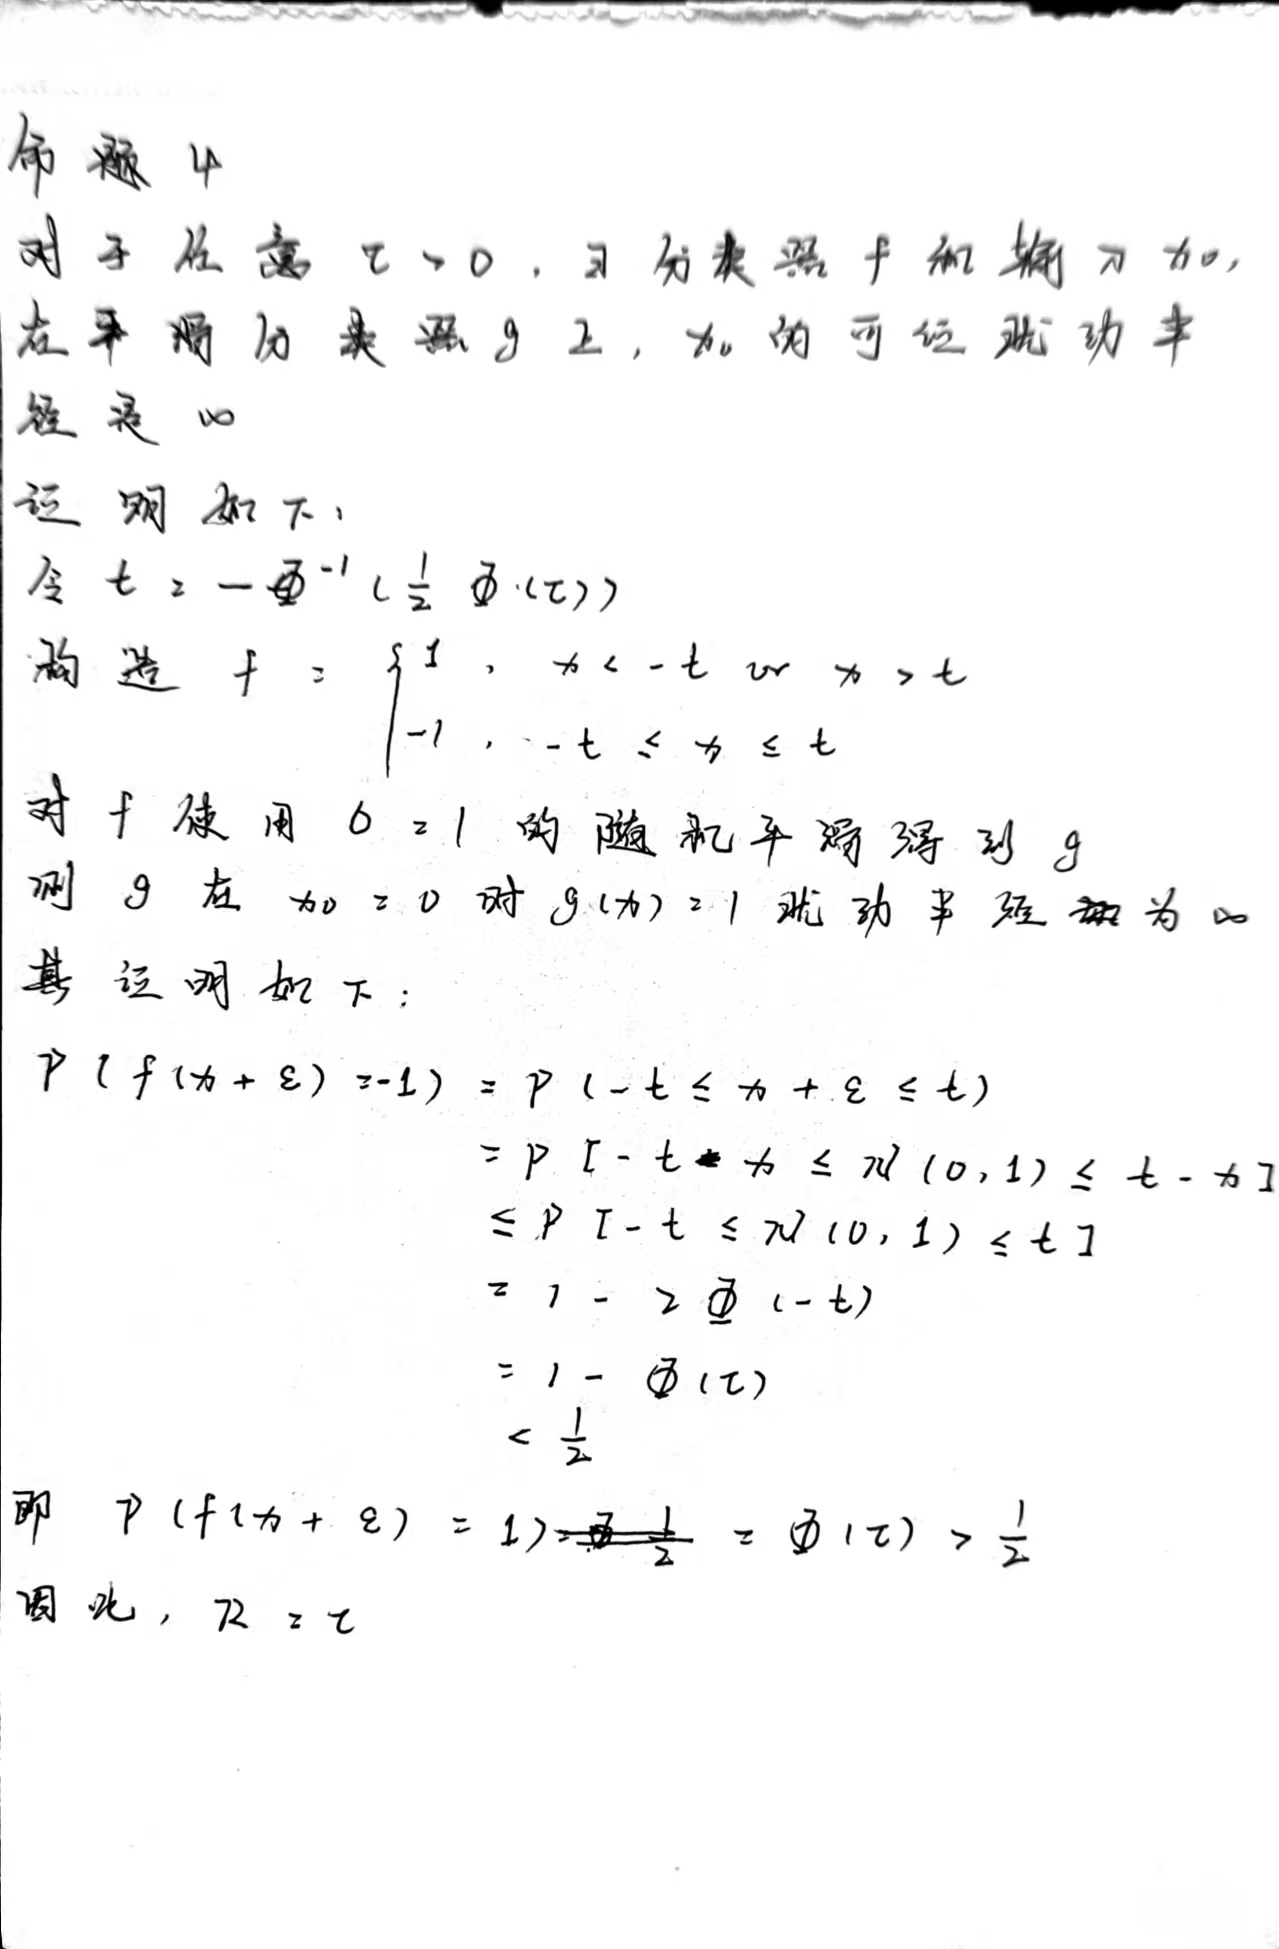 命题 4
对于任意 τ > 0，习分类器 f 和输入 x₀,
在平滑分类器 g 上，x₀ 的可证扰动半
径是 ∞
证明如下：
令 t = -Φ⁻¹ ( 1/2 Φ(τ))
构造 f = { 1 , x < -t or x > t
-1 , -t ≤ x ≤ t
对 f 使用 σ = 1 的随机平滑得到 g
则 g 在 x₀ = 0 对 g(x) = 1 扰动半径为 ∞
其证明如下：
P ( f(x + ε) = -1) = P ( -t ≤ x + ε ≤ t)
= P [ -t - x ≤ N(0, 1) ≤ t - x ]
≤ P [ -t ≤ N(0, 1) ≤ t ]
= 1 - 2Φ (-t)
= 1 - Φ(τ)
< 1/2
即 P (f(x + ε) = 1) = Φ(τ) > 1/2
因此，R = τ